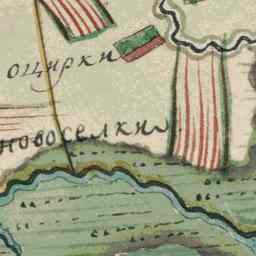 оцирки
новоселки